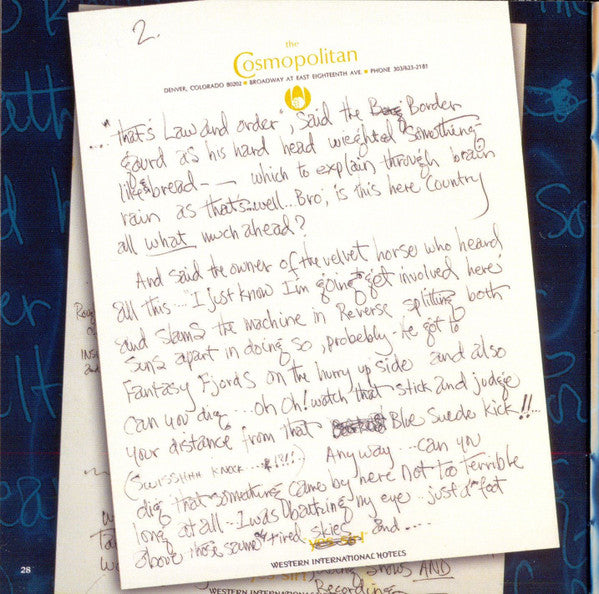 2.
the
Cosmopolitan
DENVER, COLORADO 80202 • BROADWAY AT EAST EIGHTEENTH AVE. • PHONE 303/623-2181
..."that's Law and order", Said the Border
gourd as his hard head wieghted something
like bread -- which to explain through brain
rain as that's well.. Bro, is this here Country
all what much ahead?
And said the owner of the velvet horse who heard
all this... I just know I'm going get involved here
and slams the machine in Reverse splitting both
Suns apart in doing so, probebly. he got to
Fantasy Fjords on the hurry up side and also
Can you dig... oh Oh! watch that stick and judge
your distance from that Blue Suede kick!!...
(SWISSHHH KNOCK...!?!) Anyway... Can you
dig that something came by here not too terrible
long at all... I was bathing my eye... just a foot
above those same tired skies and....
WESTERN INTERNATIONAL HOTELS
28
AND
Recordings